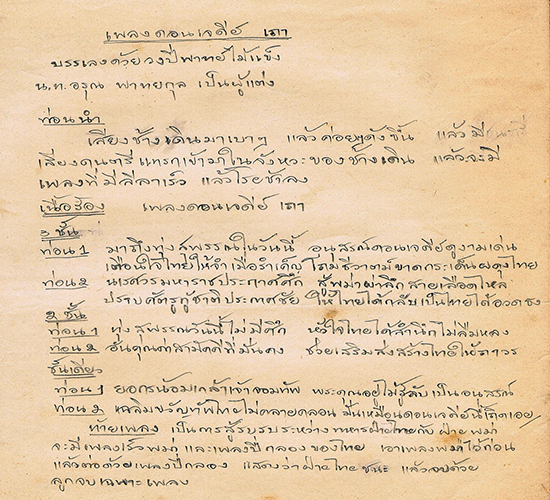 เพลงดอนเจดีย์ เถา
บรรเลงด้วยวงปี่พาทย์ไม้แข็ง
น.ท.อรุณ พาทยกุล เป็นผู้แต่ง
ท่อนนำ
เสียงช้างเดินมาเบาๆ แล้วค่อยๆดังขึ้น แล้วมี
เสียงดนตรีแทรกเข้ามาในจังหวะของช้างเดิน และจะมี
เพลงที่มีลีลาเร็ว แล้วโรยช้าลง
เนื้อร้อง เพลงดอนเจดีย์ เถา
๓ ชั้น
ท่อน 1 มาถึงทุ่งสุพรรณในวันนี้ อนุสรณ์ดอนเจดีย์ดูงามเด่น
เตือนใจไทยให้จำเมื่อรำเค็ญ ผดุงไทย
ท่อน ๒ นเรศวรมหาราชประกาศศึก สู้พม่าผาลึกสายเลือดไหล
ปราบศัตรูกู้ชาติประกาศชัย ให้ไทยได้กลับเป็นไทยได้อวดธง
๒ ชั้น
ท่อน 1 ทุ่งสุพรรณวันนี้ไม่มีศึก หัวใจไทยได้สำนึกไม่ลืมหลง
ท่อน ๒ อันคุณค่าสามัคคีที่มั่นคง ช่วยเสริมส่งสร้างไทยให้ถาวร
ชั้นเดียว
ท่อน 1 ยอกรน้อมเกล้าเจ้าจอมทัพ พระคุณอยู่ไม่รู้ลับเป็นอนุสรณ์
ท่อน ๒ เฉลิมขวัญทัพไทยไม่คลายคลอน มั่นเหมือนดอนเจดีย์นี้ที่โตเอย
ท้ายเพลง เป็นการสู้รบระหว่างทหารฝ่ายไทยกับฝ่ายพม่า
จะมีเพลงเร็วพม่า และเพลงปี่กลองของไทย เอาเพลงพม่าไว้ก่อน
แล้วต่อด้วยเพลงปี่กลอง แสดงว่าฝ่ายไทยชนะ แล้วจบด้วย
ลูกจบเฉพาะเพลง